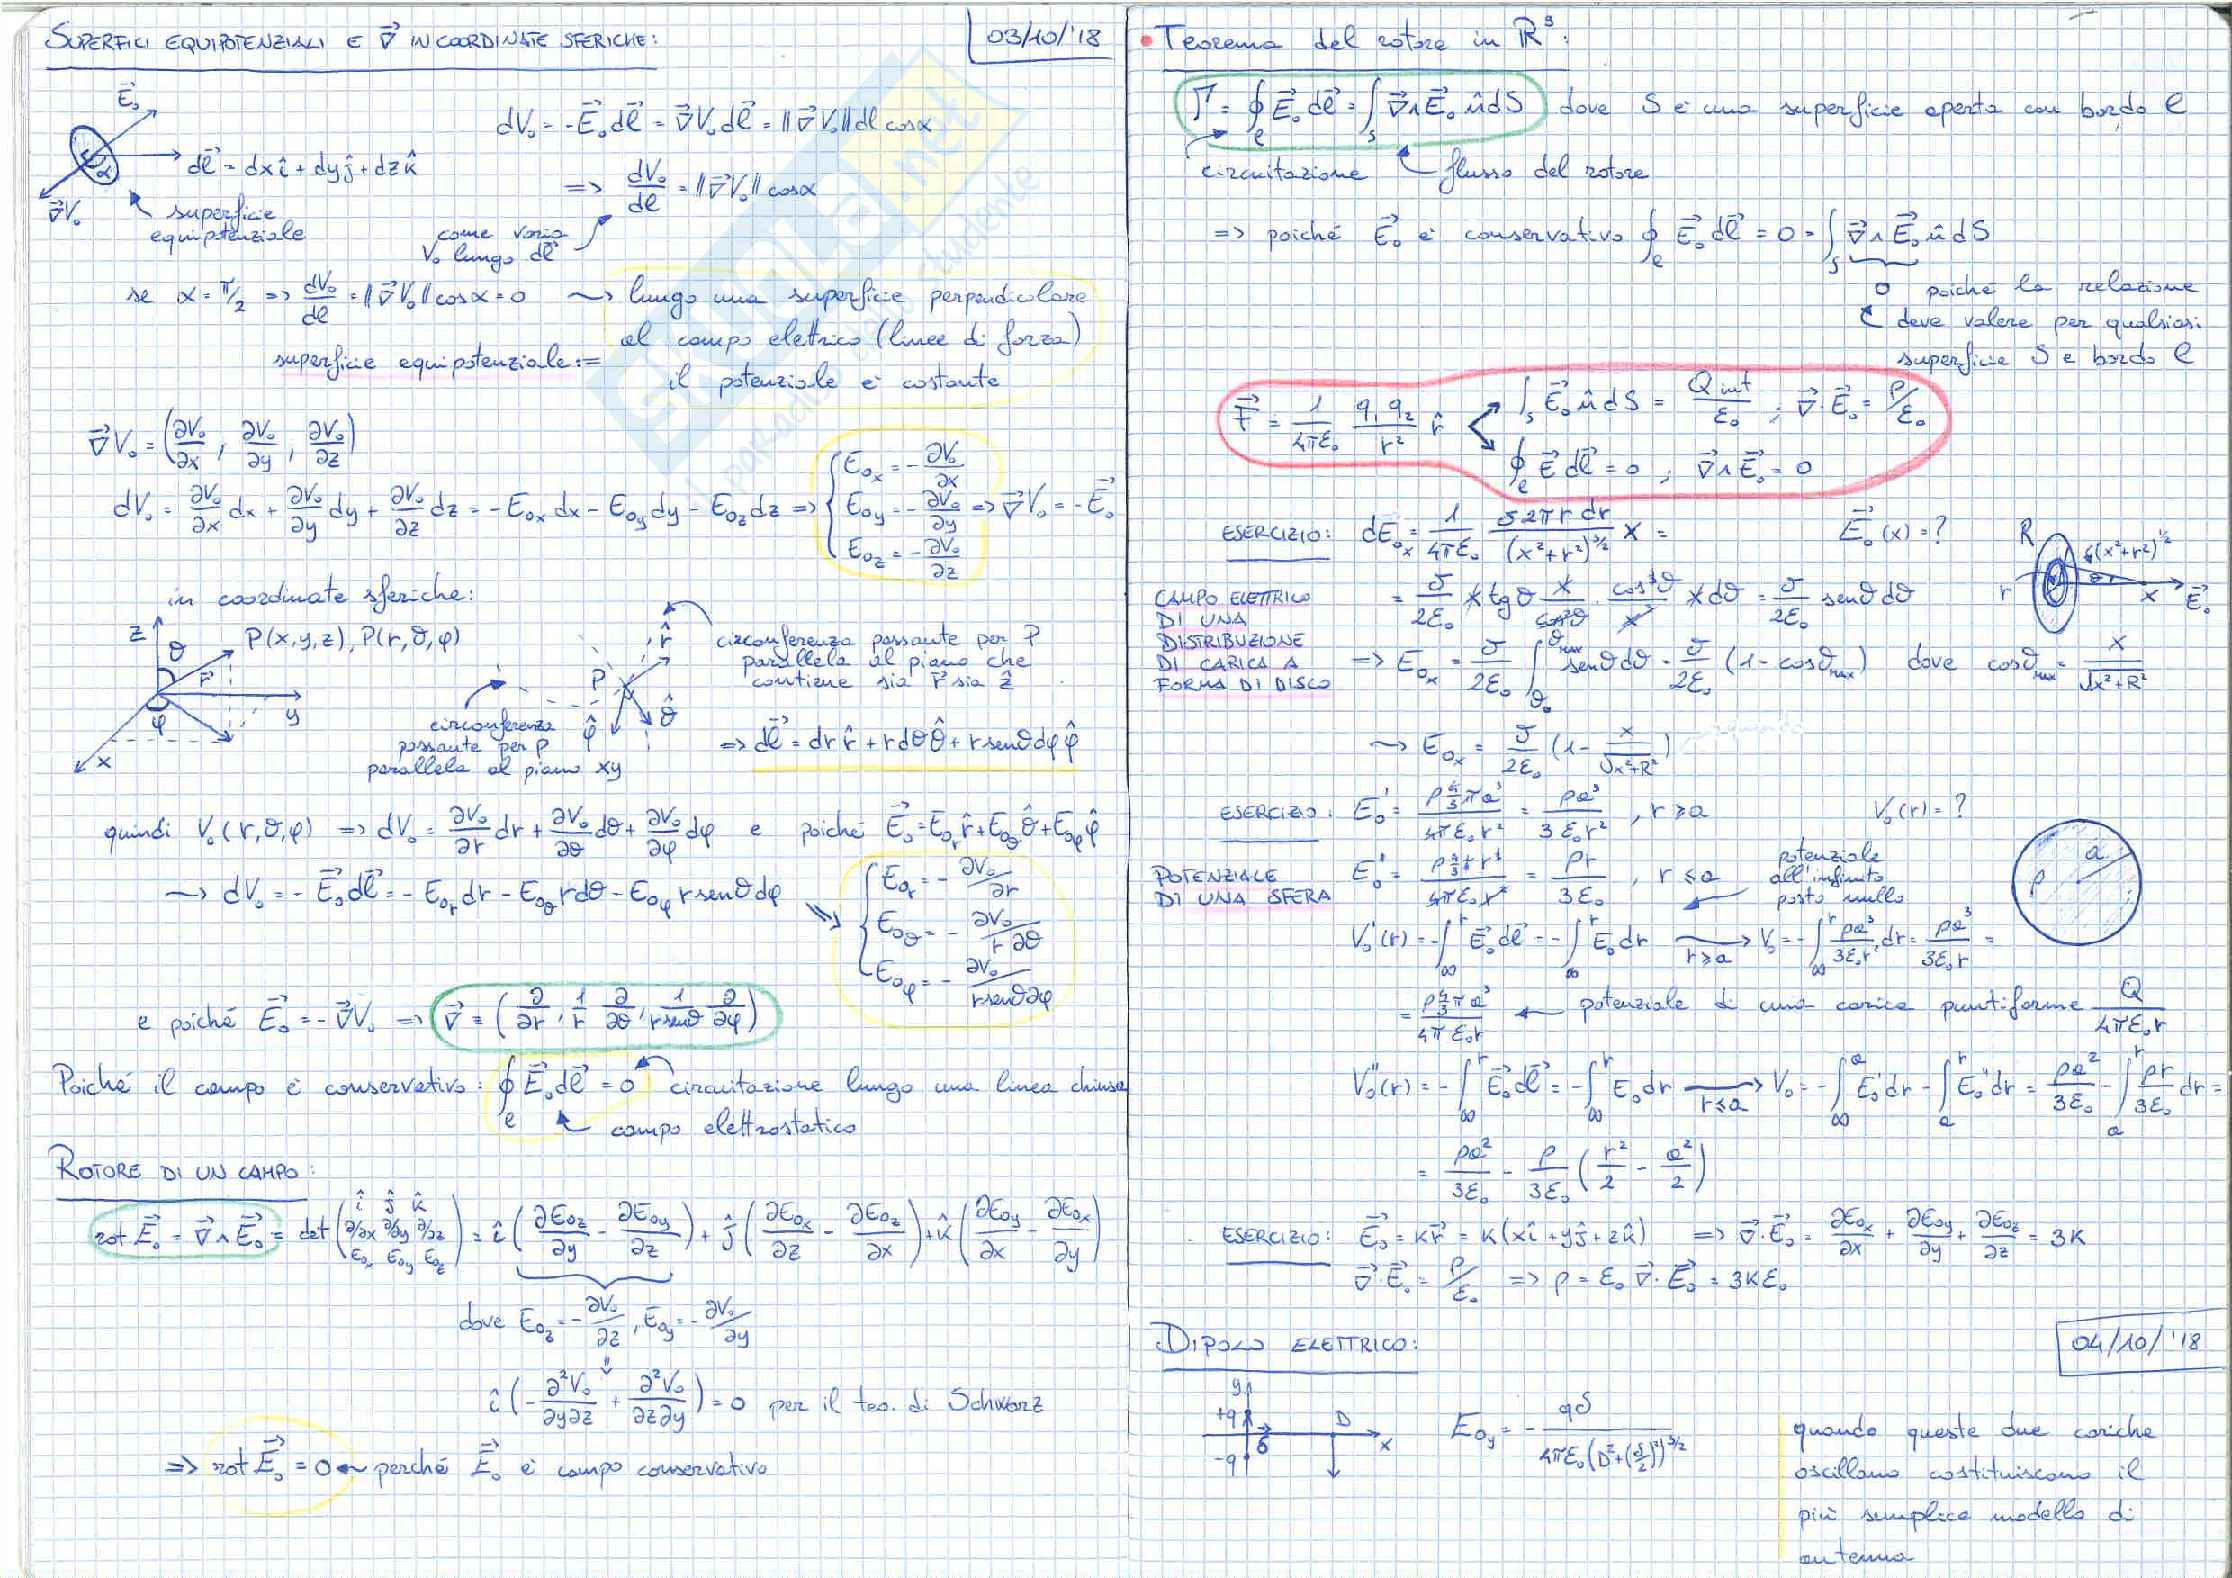 SUPERFICI EQUIPOTENZIALI E ∇⃗ IN COORDINATE SFERICHE:
03/10/'18
E⃗₀
dV₀ = -E⃗₀ dl⃗ = ∇⃗V₀ dl⃗ = ‖∇⃗V₀‖ dl cosα
dl⃗ = dx î + dy ĵ + dz k̂
α
=> dV₀/dl = ‖∇⃗V₀‖ cosα
∇⃗V₀
superficie
equipotenziale
come varia
V₀ lungo dl⃗
se α = π/2 => dV₀/dl = ‖∇⃗V₀‖ cosα = 0 ~> lungo una superficie perpendicolare
al campo elettrico (linee di forza)
superficie equipotenziale:=
il potenziale è costante
∇⃗V₀ = (∂V₀/∂x, ∂V₀/∂y, ∂V₀/∂z)
dV₀ = ∂V₀/∂x dx + ∂V₀/∂y dy + ∂V₀/∂z dz = -E₀x dx - E₀y dy - E₀z dz => { E₀x = -∂V₀/∂x
E₀y = -∂V₀/∂y => ∇⃗V₀ = -E⃗₀
E₀z = -∂V₀/∂z
in coordinate sferiche:
z ϑ P(x,y,z), P(r,ϑ,φ)
r⃗ φ y x
P r̂ ϑ̂ φ̂
circonferenza passante per P
parallela al piano che
contiene sia r⃗ sia ẑ
circonferenza
passante per P
parallela al piano xy
=> dl⃗ = dr r̂ + r dϑ ϑ̂ + r senϑ dφ φ̂
quindi V₀(r,ϑ,φ) => dV₀ = ∂V₀/∂r dr + ∂V₀/∂ϑ dϑ + ∂V₀/∂φ dφ e poiché E⃗₀ = E₀r r̂ + E₀ϑ ϑ̂ + E₀φ φ̂
~> dV₀ = -E⃗₀ dl⃗ = -E₀r dr - E₀ϑ r dϑ - E₀φ r senϑ dφ => { E₀r = -∂V₀/∂r
E₀ϑ = -∂V₀/r∂ϑ
E₀φ = -∂V₀/r senϑ ∂φ
e poiché E⃗₀ = -∇⃗V₀ => ∇⃗ = (∂/∂r, 1/r ∂/∂ϑ, 1/r senϑ ∂/∂φ)
Poiché il campo è conservativo: ∮ℓ E⃗₀ dl⃗ = 0 circuitazione lungo una linea chiusa
campo elettrostatico
ROTORE DI UN CAMPO:
rot E⃗₀ = ∇⃗ ∧ E⃗₀ = det (î ĵ k̂; ∂/∂x ∂/∂y ∂/∂z; E₀x E₀y E₀z) = î (∂E₀z/∂y - ∂E₀y/∂z) + ĵ (∂E₀x/∂z - ∂E₀z/∂x) + k̂ (∂E₀y/∂x - ∂E₀x/∂y)
dove E₀z = -∂V₀/∂z, E₀y = -∂V₀/∂y
î (-∂²V₀/∂y∂z + ∂²V₀/∂z∂y) = 0 per il teo. di Schwarz
=> rot E⃗₀ = 0 perché E⃗₀ è campo conservativo
• Teorema del rotore in ℝ³:
Γ = ∮ℓ E⃗₀ dl⃗ = ∫S ∇⃗ ∧ E⃗₀ n̂ dS dove S è una superficie aperta con bordo ℓ
circuitazione flusso del rotore
=> poiché E⃗₀ è conservativo ∮ℓ E⃗₀ dl⃗ = 0 = ∫S ∇⃗ ∧ E⃗₀ n̂ dS
0 poiché la relazione
deve valere per qualsiasi
superficie S e bordo ℓ
F⃗ = 1/4πε₀ q₁q₂/r² r̂ ∫S E⃗₀ n̂ dS = Qint/ε₀ ; ∇⃗·E⃗₀ = ρ/ε₀
∮ℓ E⃗ dl⃗ = 0 ; ∇⃗ ∧ E⃗₀ = 0
ESERCIZIO: dE₀x = 1/4πε₀ σ2πr dr/(x²+r²)^3/2 x = E⃗₀(x) = ?
R (x²+r²)^1/2 r ϑ x E⃗₀
CAMPO ELETTRICO
DI UNA
DISTRIBUZIONE
DI CARICA A
FORMA DI DISCO
= σ/2ε₀ x tgϑ x/cos²ϑ · cos³ϑ/x³ x dϑ = σ/2ε₀ senϑ dϑ
=> E₀x = σ/2ε₀ ∫ϑ₀^ϑmax senϑ dϑ = σ/2ε₀ (1 - cosϑmax) dove cosϑmax = x/√x²+R²
~> E₀x = σ/2ε₀ (1 - x/√x²+R²)
ESERCIZIO: E₀' = ρ 4/3 π a³/4πε₀r² = ρa³/3ε₀r², r ≥ a V₀(r) = ?
POTENZIALE
DI UNA SFERA
E₀' = ρ 4/3 π r³/4πε₀r² = ρr/3ε₀, r ≤ a
potenziale
all'infinito
posto nullo
ρ a
V₀'(r) = -∫∞^r E⃗₀ dl⃗ = -∫∞^r E₀ dr r≥a → V₀ = -∫∞^r ρa³/3ε₀r² dr = ρa³/3ε₀r =
= ρ 4/3 π a³/4πε₀r ← potenziale di una carica puntiforme Q/4πε₀r
V₀''(r) = -∫∞^r E⃗₀ dl⃗ = -∫∞^r E₀ dr r≤a → V₀ = -∫∞^a E₀' dr - ∫a^r E₀'' dr = ρa²/3ε₀ - ∫a^r ρr/3ε₀ dr =
= ρa²/3ε₀ - ρ/3ε₀ (r²/2 - a²/2)
ESERCIZIO: E⃗₀ = kr⃗ = k(xî + yĵ + zk̂) => ∇⃗·E⃗₀ = ∂E₀x/∂x + ∂E₀y/∂y + ∂E₀z/∂z = 3k
∇⃗·E⃗₀ = ρ/ε₀ => ρ = ε₀ ∇⃗·E⃗₀ = 3kε₀
DIPOLO ELETTRICO:
04/10/'18
y +q δ -q D x
E₀y = - qδ/4πε₀(D²+(δ/2)²)^3/2
quando queste due cariche
oscillano costituiscono il
più semplice modello di
antenna